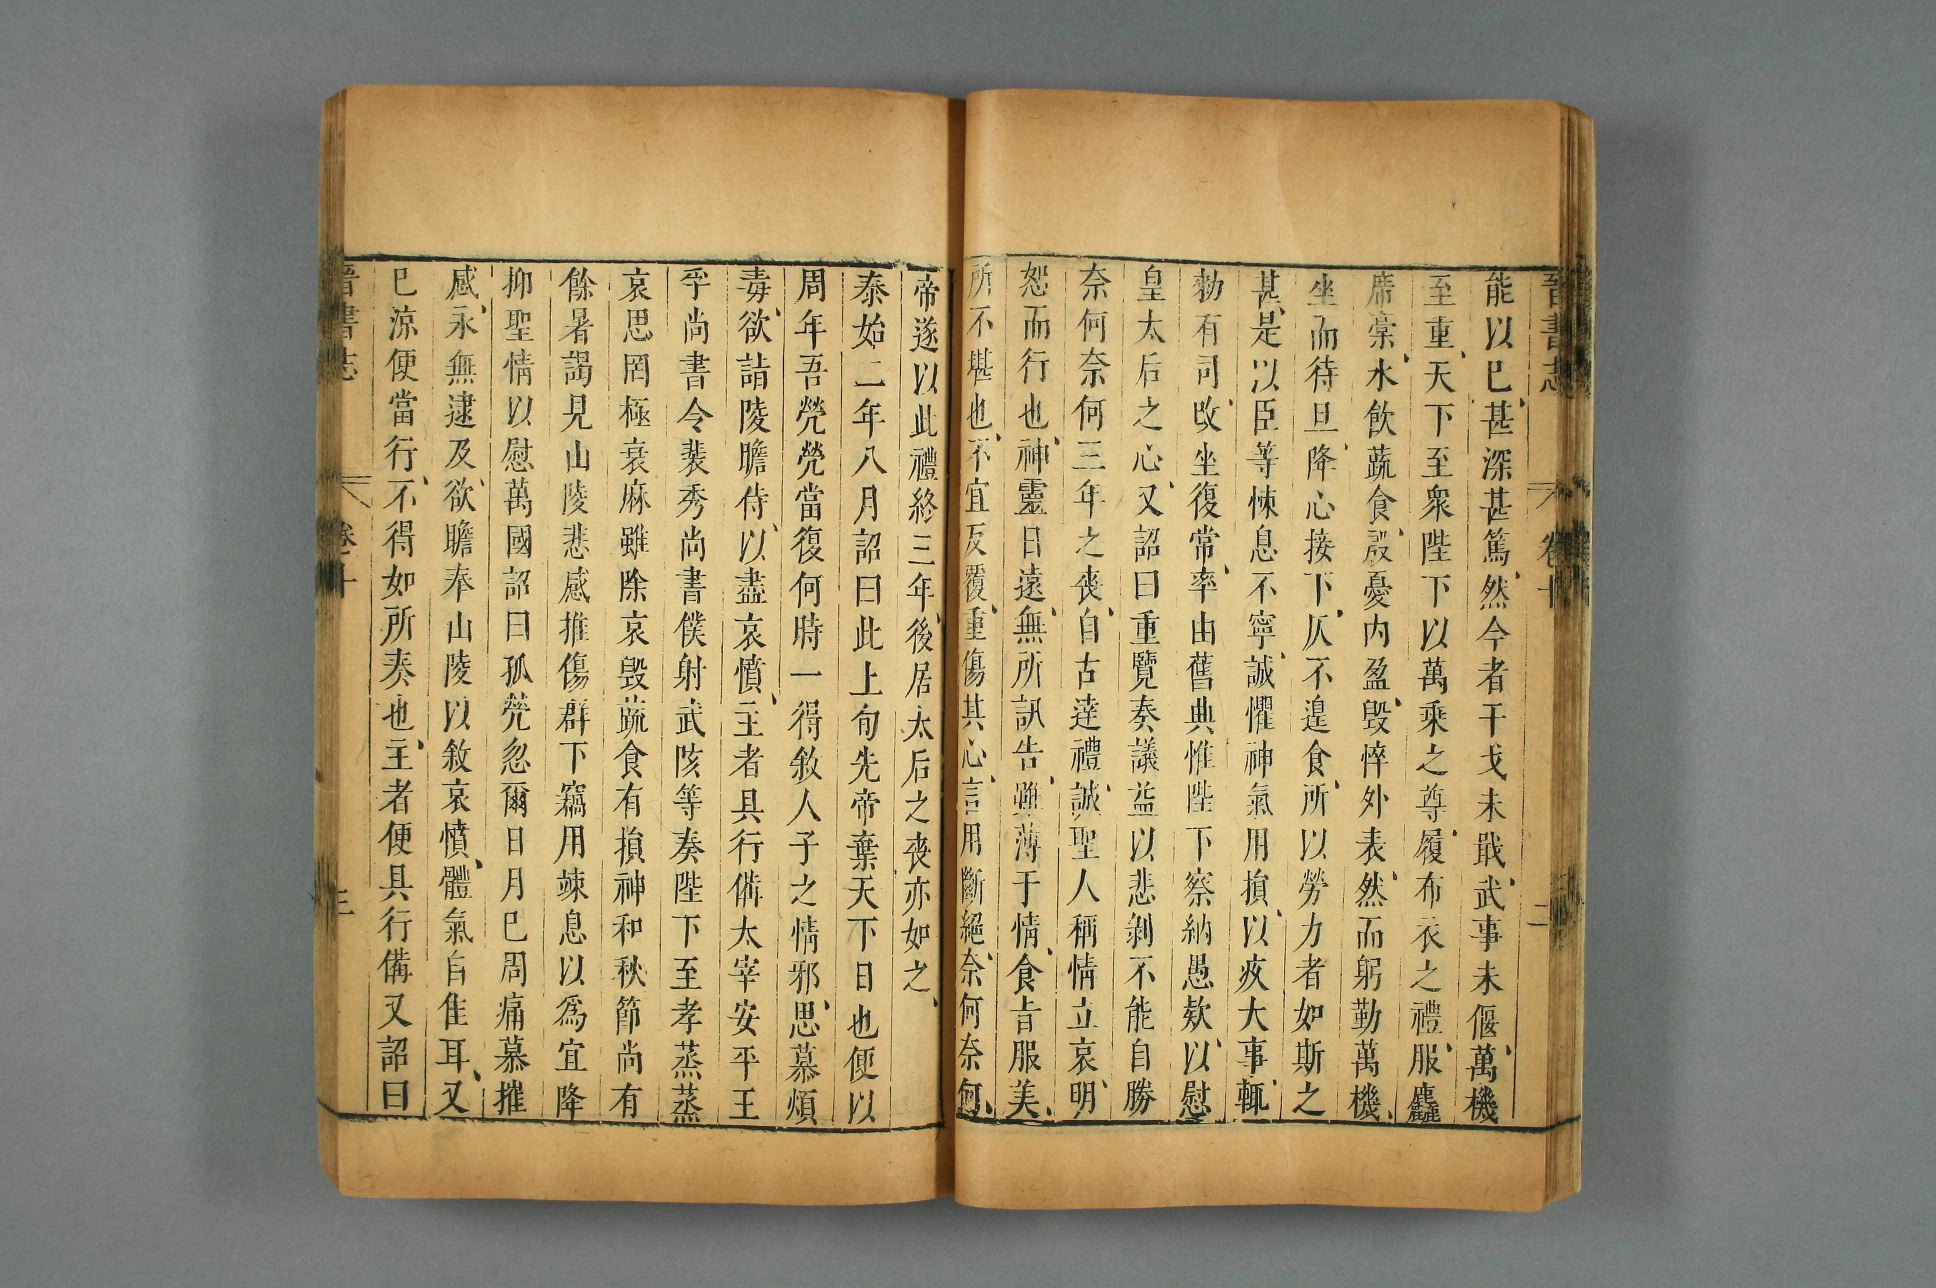 晉書志 卷十 二
能以已甚深甚篤然今者干戈未戢武事未偃萬機
至重天下至衆陛下以萬乘之尊履布衣之禮服麤
席藁水飲蔬食殷憂内盈毁悴外表然而躬勤萬機
坐而待旦降心接下仄不遑食所以勞力者如斯之
甚是以臣等悚息不寧誠懼神氣用損以疚大事輒
勑有司改坐復常率由舊典惟陛下察納愚欵以慰
皇太后之心又詔曰重覽奏議益以悲剝不能自勝
奈何奈何三年之喪自古達禮誠聖人稱情立哀明
恕而行也神靈日遠無所訊告雖薄于情食旨服美
所不堪也不宜反覆重傷其心言用斷絕奈何奈何
帝遂以此禮終三年後居太后之喪亦如之
泰始二年八月詔曰此上旬先帝棄天下日也便以
周年吾煢煢當復何時一得敘人子之情邪思慕煩
毒欲詣陵瞻侍以盡哀憤主者具行備太宰安平王
孚尚書令裴秀尚書僕射武陔等奏陛下至孝蒸蒸
哀思罔極衰麻雖除哀毁蔬食有損神和秋節尚有
餘暑謁見山陵悲感推傷群下竊用竦息以爲宜降
抑聖情以慰萬國詔曰孤煢忽爾日月已周痛慕摧
感永無逮及欲瞻奉山陵以敘哀憤體氣自佳耳又
已涼便當行不得如所奏也主者便具行備又詔曰
晉書志 卷十 三